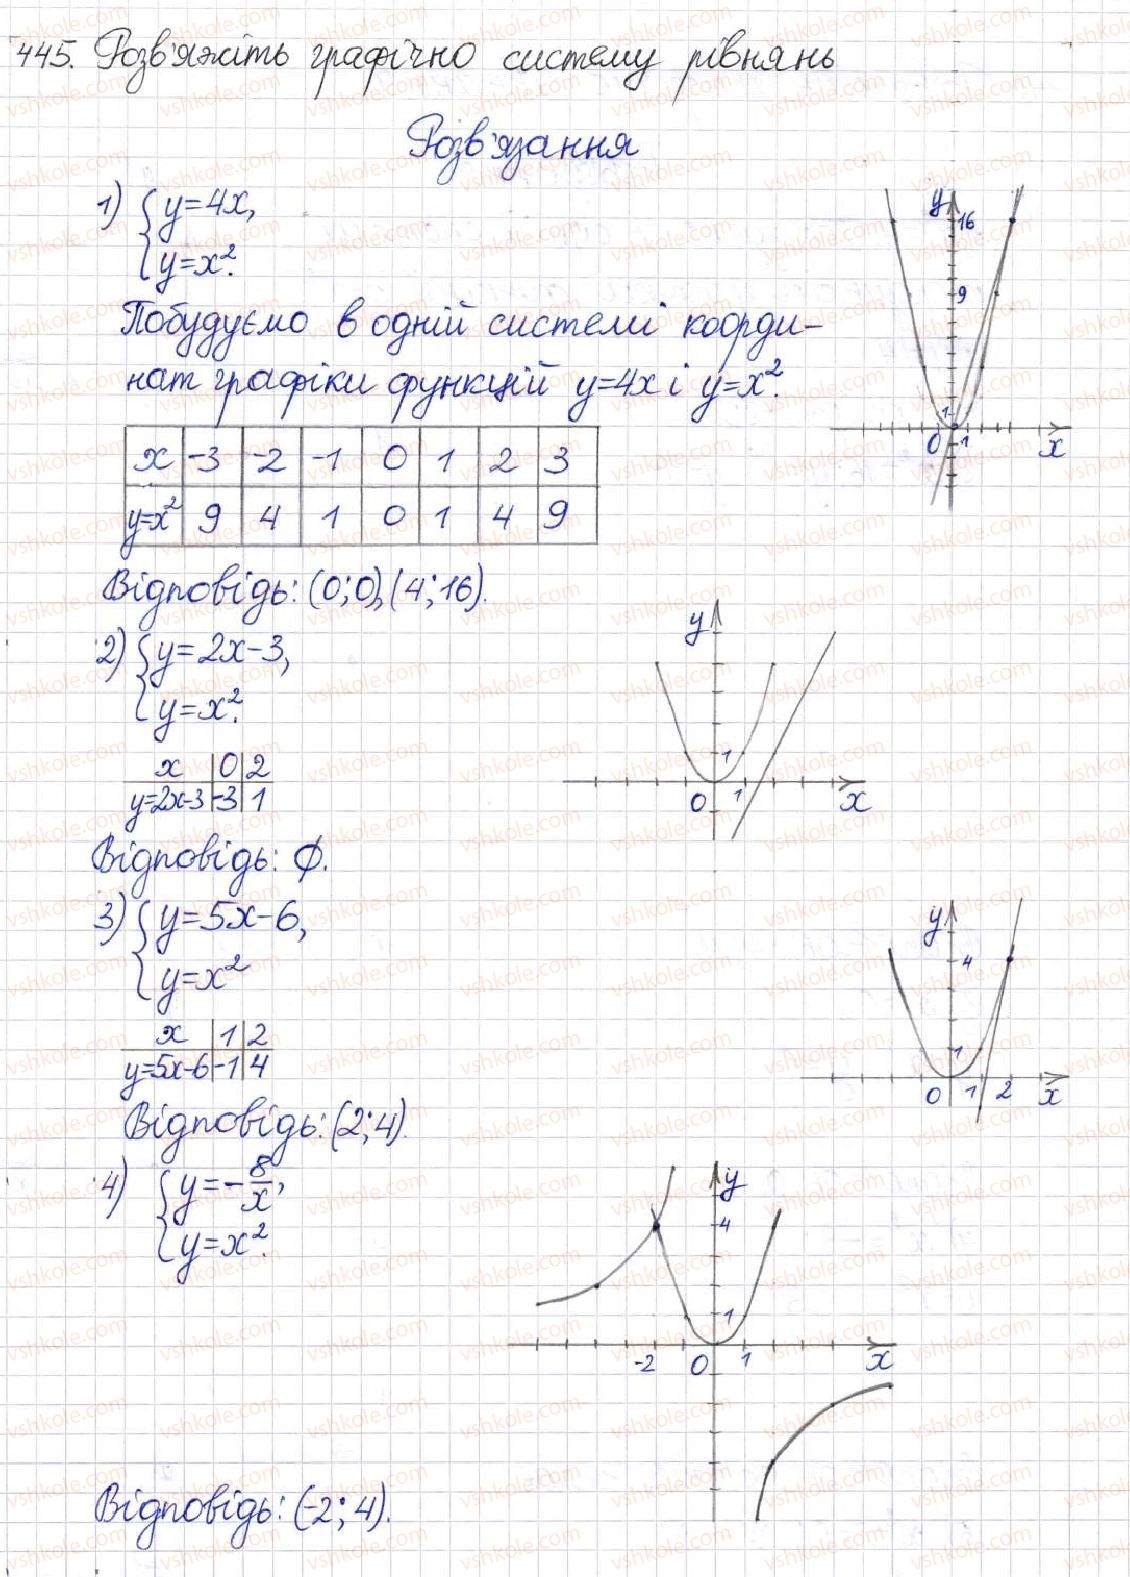 445. Розв'яжіть графічно систему рівнянь
Розв'язання
1) { y=4x,
y=x².
Побудуємо в одній системі коорди-
нат графіки функцій y=4x і y=x².
x -3 -2 -1 0 1 2 3
y=x² 9 4 1 0 1 4 9
y 16 9 1 0 1 x
Відповідь: (0;0), (4;16).
2) { y=2x-3,
y=x².
x 0 2
y=2x-3 -3 1
y 1 0 1 x
Відповідь: ∅.
3) { y=5x-6,
y=x²
x 1 2
y=5x-6 -1 4
y 4 1 0 1 2 x
Відповідь: (2;4).
4) { y=-8/x,
y=x².
y 4 1 -2 0 1 x
Відповідь: (-2;4).
vshkole.com